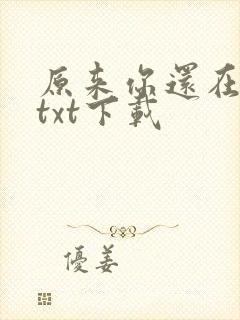 原来你還在
txt下載
優姜